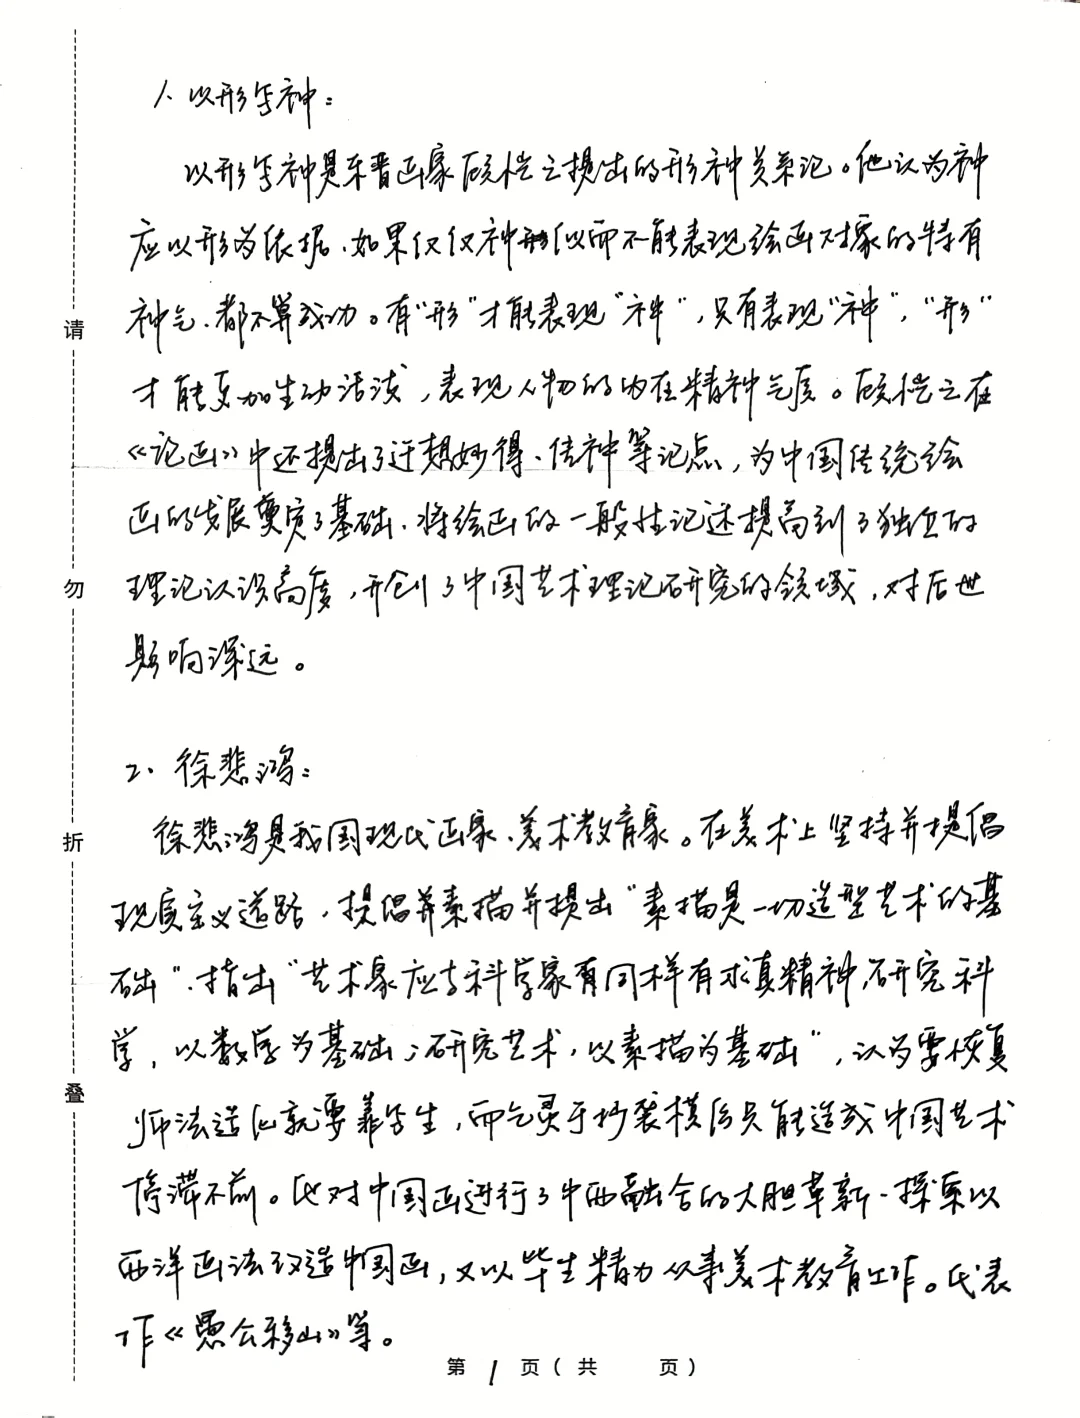 1、以形写神：
以形写神是东晋画家顾恺之提出的形神关系论。他认为神
应以形为依据、如果仅仅神形似而不能表现绘画对象的特有
神气、都不算成功。有“形”才能表现“神”，只有表现“神”，“形”
才能更加生动活泼，表现人物的内在精神气度。顾恺之在
《论画》中还提出了迁想妙得、传神等论点，为中国传统绘
画的发展奠定了基础、将绘画的一般性论述提高到了独立的
理论认识高度，开创了中国艺术理论研究的领域，对后世
影响深远。
2、徐悲鸿：
徐悲鸿是我国现代画家、美术教育家。在美术上坚持并提倡
现实主义道路，提倡并素描并提出“素描是一切造型艺术的基
础”、指出“艺术家应与科学家有同样有求真精神，研究科
学，以数学为基础；研究艺术，以素描为基础”，认为要恢复
师法造化就要靠写生，而乞灵于抄袭模仿只能造成中国艺术
停滞不前。他对中国画进行了中西融合的大胆革新、探索以
西洋画法改造中国画，又以毕生精力从事美术教育工作。代表
作《愚公移山》等。
请
勿
折
叠
第 1 页（共 页）